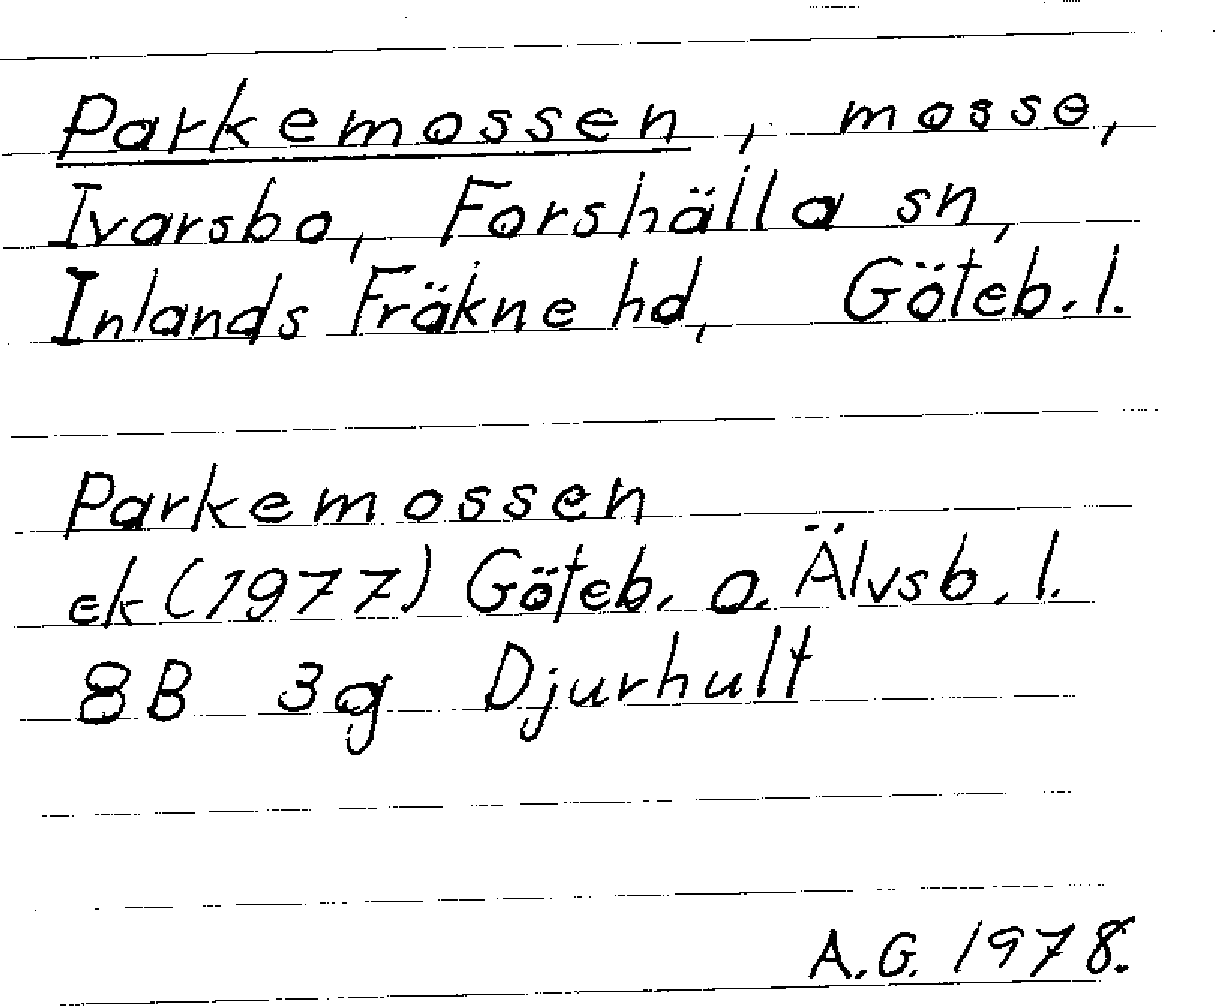 Parkemossen, mosse,
Ivarsbo, Forshälla sn,
Inlands Fräkne hd, Göteb. l.
Parkemossen
ek (1977) Göteb. o. Älvsb. l.
8B 3g Djurhult
A.G. 1978.